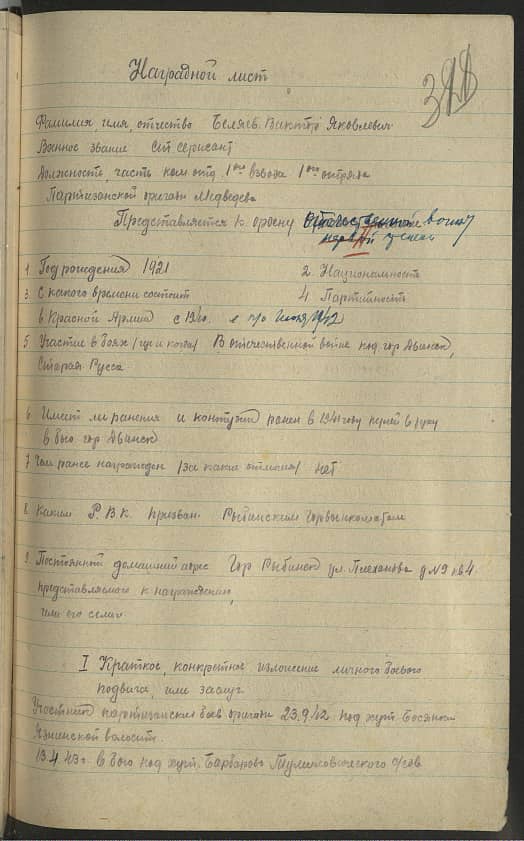 328
Наградной лист
Фамилия, имя, отчество Беляев Виктор Яковлевич
Военное звание Ст сержант
Должность, часть ком отд. 1ого взвода 1ого отряда
Партизанской бригады Медведева
Представляется к ордену Отечественной войны
II степени
1 Год рождения 1921
2. Национальность
3. С какого времени состоит
4 Партийность
в Красной Армии с 1940. по июня 1942
5 Участие в боях /где и когда/ В отечественной войне под гор Двинск,
Старая Русса
6 Имеет ли ранения и контузии ранен в 1941 году пулей в руку
в бою гор Двинск
7 Чем ранее награжден /за какие отличия/ нет
8 Каким Р.В.К. призван Рыбинским Горвоенкоматом
9. Постоянный домашний адрес Гор Рыбинск ул. Плеханова д №9 кв 4.
представляемого к награждению,
или его семьи
I Краткое, конкретное изложение личного боевого
подвига, или заслуг
Участник партизанских боев бригады 23.9.42 под хут.
волости.
13.4.43г. в бою под хут. Барбарово с/сов